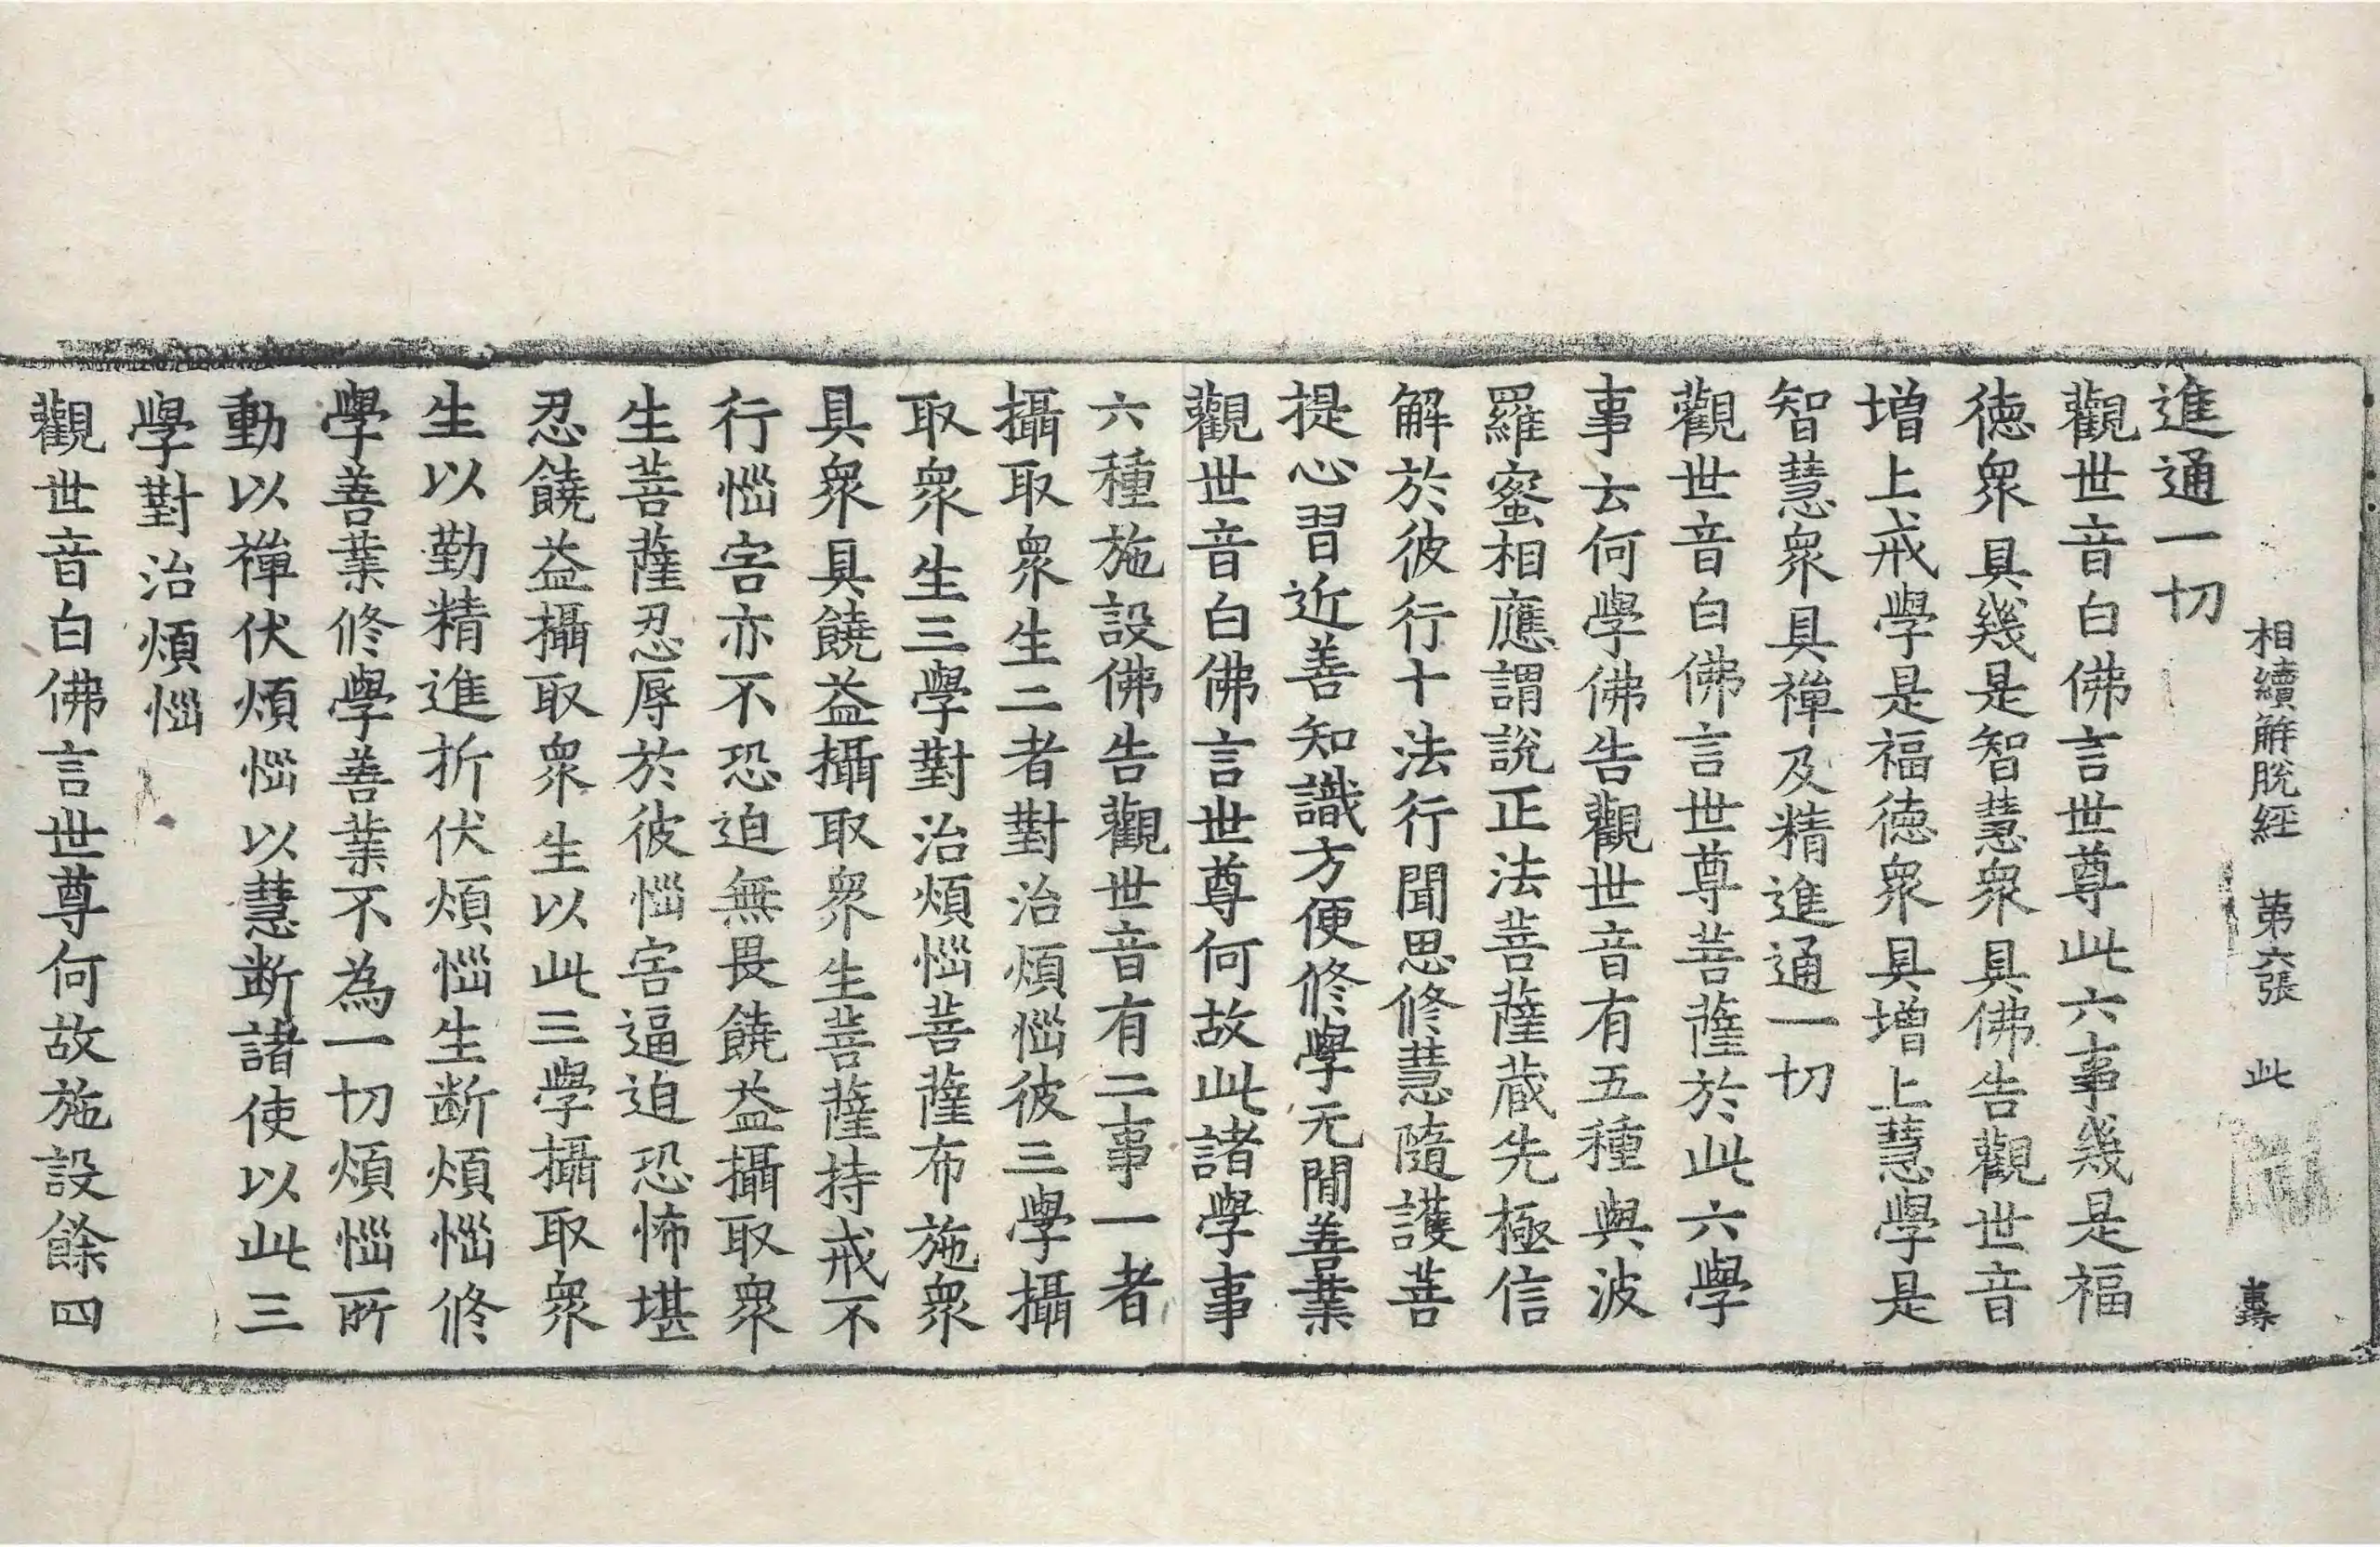 相續解脫經 第六張 此
進通一切
觀世音白佛言世尊此六事幾是福
德衆具幾是智慧衆具佛告觀世音
增上戒學是福德衆具增上慧學是
智慧衆具禪及精進通一切
觀世音白佛言世尊菩薩於此六學
事云何學佛告觀世音有五種與波
羅蜜相應謂說正法菩薩藏先極信
解於彼行十法行聞思修慧隨護菩
提心習近善知識方便修學无閒善業
觀世音白佛言世尊何故此諸學事
六種施設佛告觀世音有二事一者
攝取衆生二者對治煩惱彼三學攝
取衆生三學對治煩惱菩薩布施衆
具衆具饒益攝取衆生菩薩持戒不
行惱害亦不恐迫無畏饒益攝取衆
生菩薩忍辱於彼惱害逼迫恐怖堪
忍饒益攝取衆生以此三學攝取衆
生以勤精進折伏煩惱生断煩惱修
學善業修學善業不為一切煩惱所
動以禪伏煩惱以慧断諸使以此三
學對治煩惱
觀世音白佛言世尊何故施設餘四